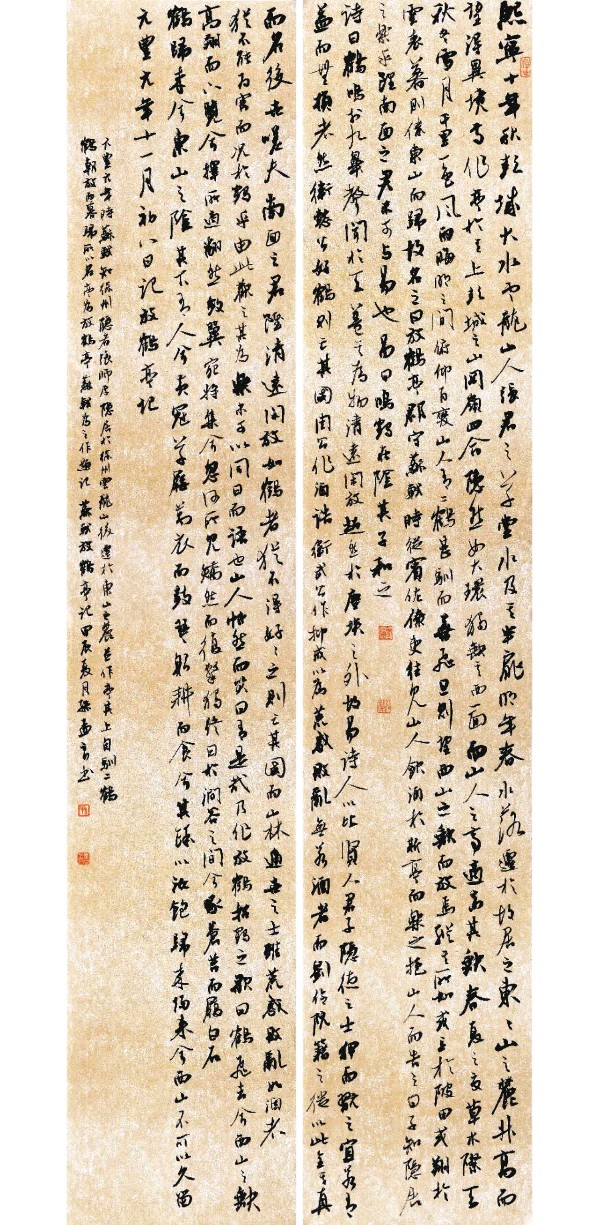 熙寧十年秋彭城大水雲龍山人張君之草堂水及其半扉明年春水落遷於故居之東々山之麓升高而
望得異境焉作亭於其上彭城之山岡嶺四合隱然如大環獨缺其西面而山人之亭適當其缺春夏之交草木際天
秋冬雪月千里一色風雨晦明之間俯仰百變山人有二鶴甚馴而善飛旦則望西山之缺而放焉縱其所如或立於陂田或翔於
雲表暮則傃東山而歸故名之曰放鶴亭郡守蘇軾時從賓佐僚吏往見山人飲酒於斯亭而樂之挹山人而告之曰子知隱居
之樂乎雖南面之君未可与易也易曰鳴鶴在陰其子和之
詩曰鶴鳴於九皋聲聞於天蓋其為物清遠閑放超然於塵埃之外故易詩人以比賢人君子隱德之士狎而玩之宜若有
益而無損者然衛懿公好鶴則亡其國周公作酒誥衛武公作抑戒以為荒惑敗亂無若酒者而劉伶阮籍之徒以此全其真
而名後世嗟夫南面之君雖清遠閑放如鶴者猶不得好々之則亡其國而山林遁世之士雖荒惑敗亂如酒者
猶不能為害而況於鶴乎由此觀之其為樂未可以同日而語也山人忻然而笑曰有是哉乃作放鶴招鶴之歌曰鶴飛去兮西山之缺
高翔而下覽兮擇所適翻然斂翼宛將集兮忽何所見矯然而復擊獨終日於澗谷之間兮啄蒼苔而履白石
鶴歸來兮東山之陰其下有人兮黃冠草屨葛衣而鼓琴躬耕而食兮其餘以汝飽歸來歸來兮西山不可以久留
元豐元年十一月初八日記放鶴亭記
元豐元年時蘇軾知徐州隱者張師厚隱居於徐州雲龍山後遷於東山之麓並作亭其上自馴二鶴
鶴朝放而暮歸所以名亭為放鶴亭蘇軾為之作遊記 蘇軾放鶴亭記甲辰夏月